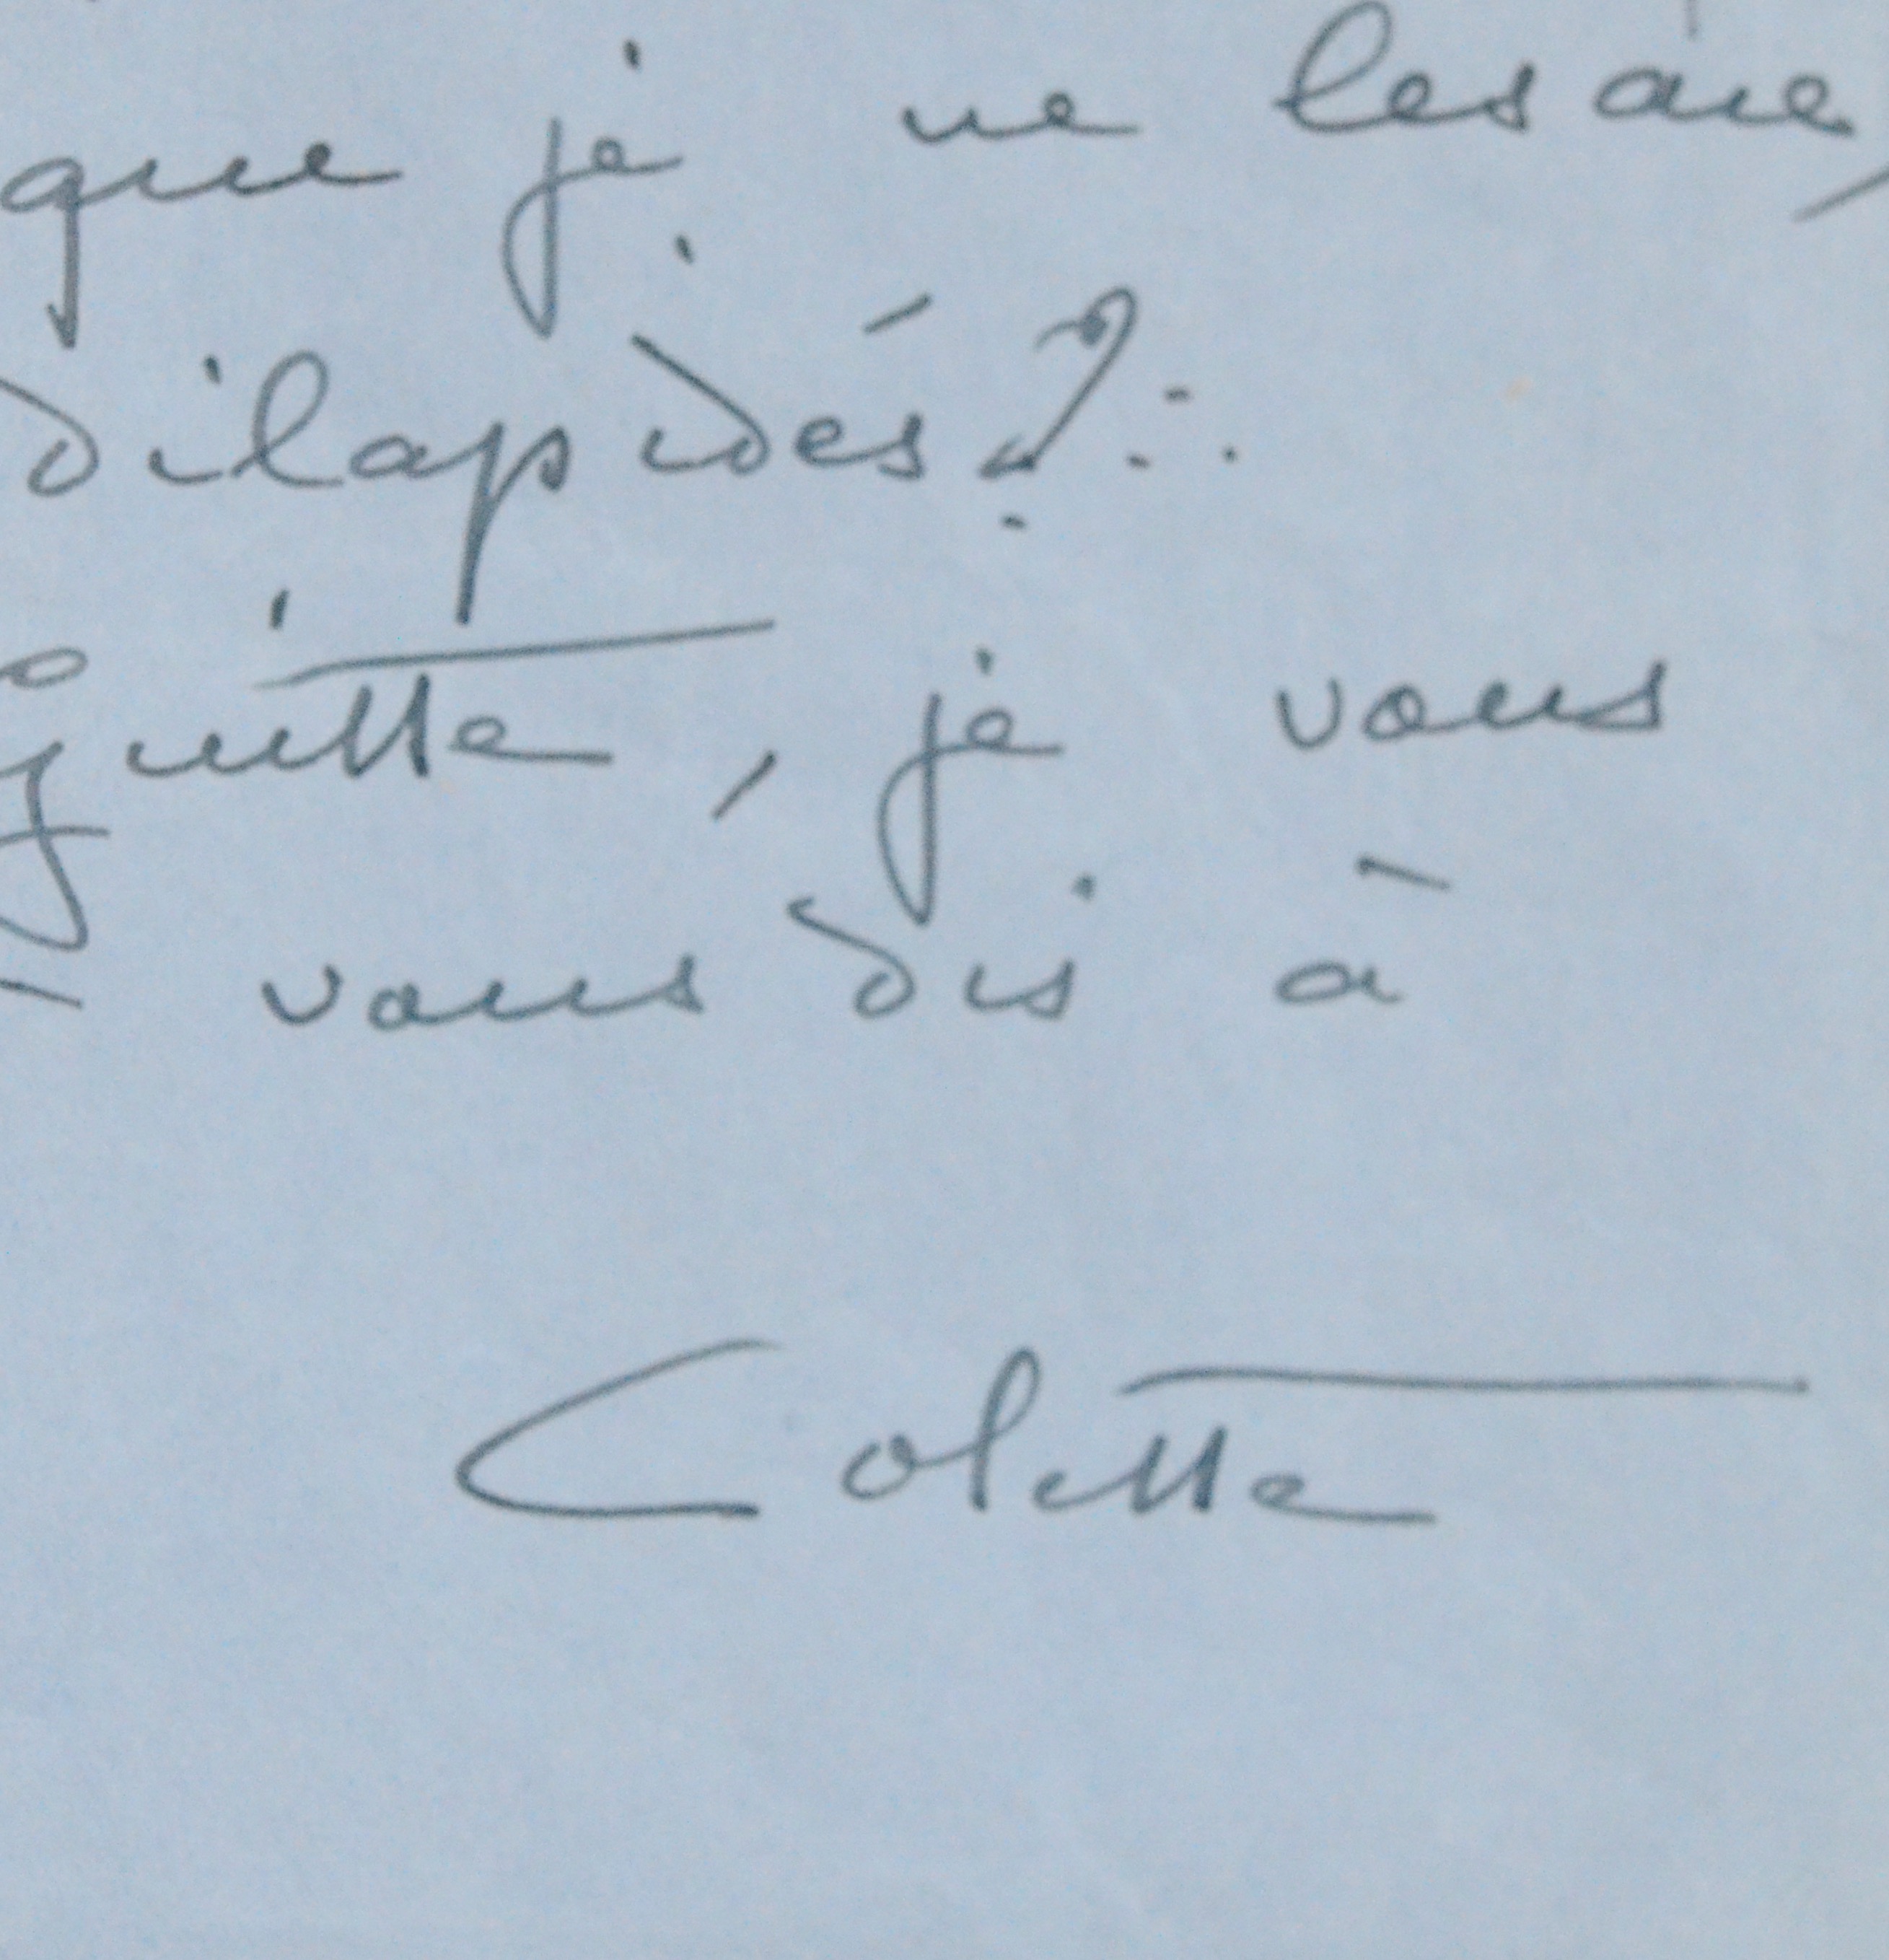 que je ne les aie,
dilapidés ?...
quitte, je vous
vous dis à
Colette